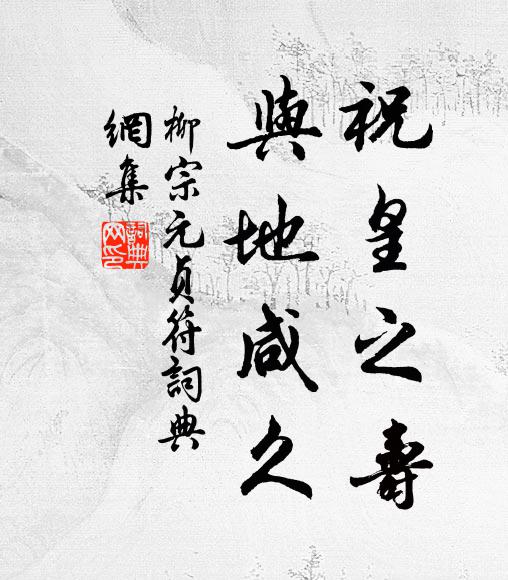 祝皇之壽
與地咸久
柳宗元貞符詞典
網集
詞典
网印